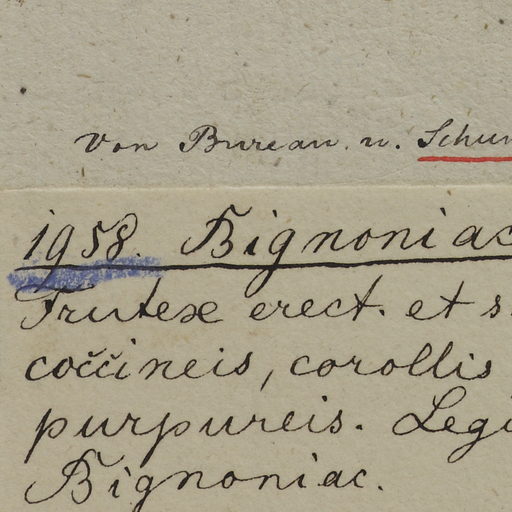 von Bureau u. Schum
1958. Bignoniac
Frutex erect. et s
coccineis, corollis
purpureis. Legi
Bignoniac.